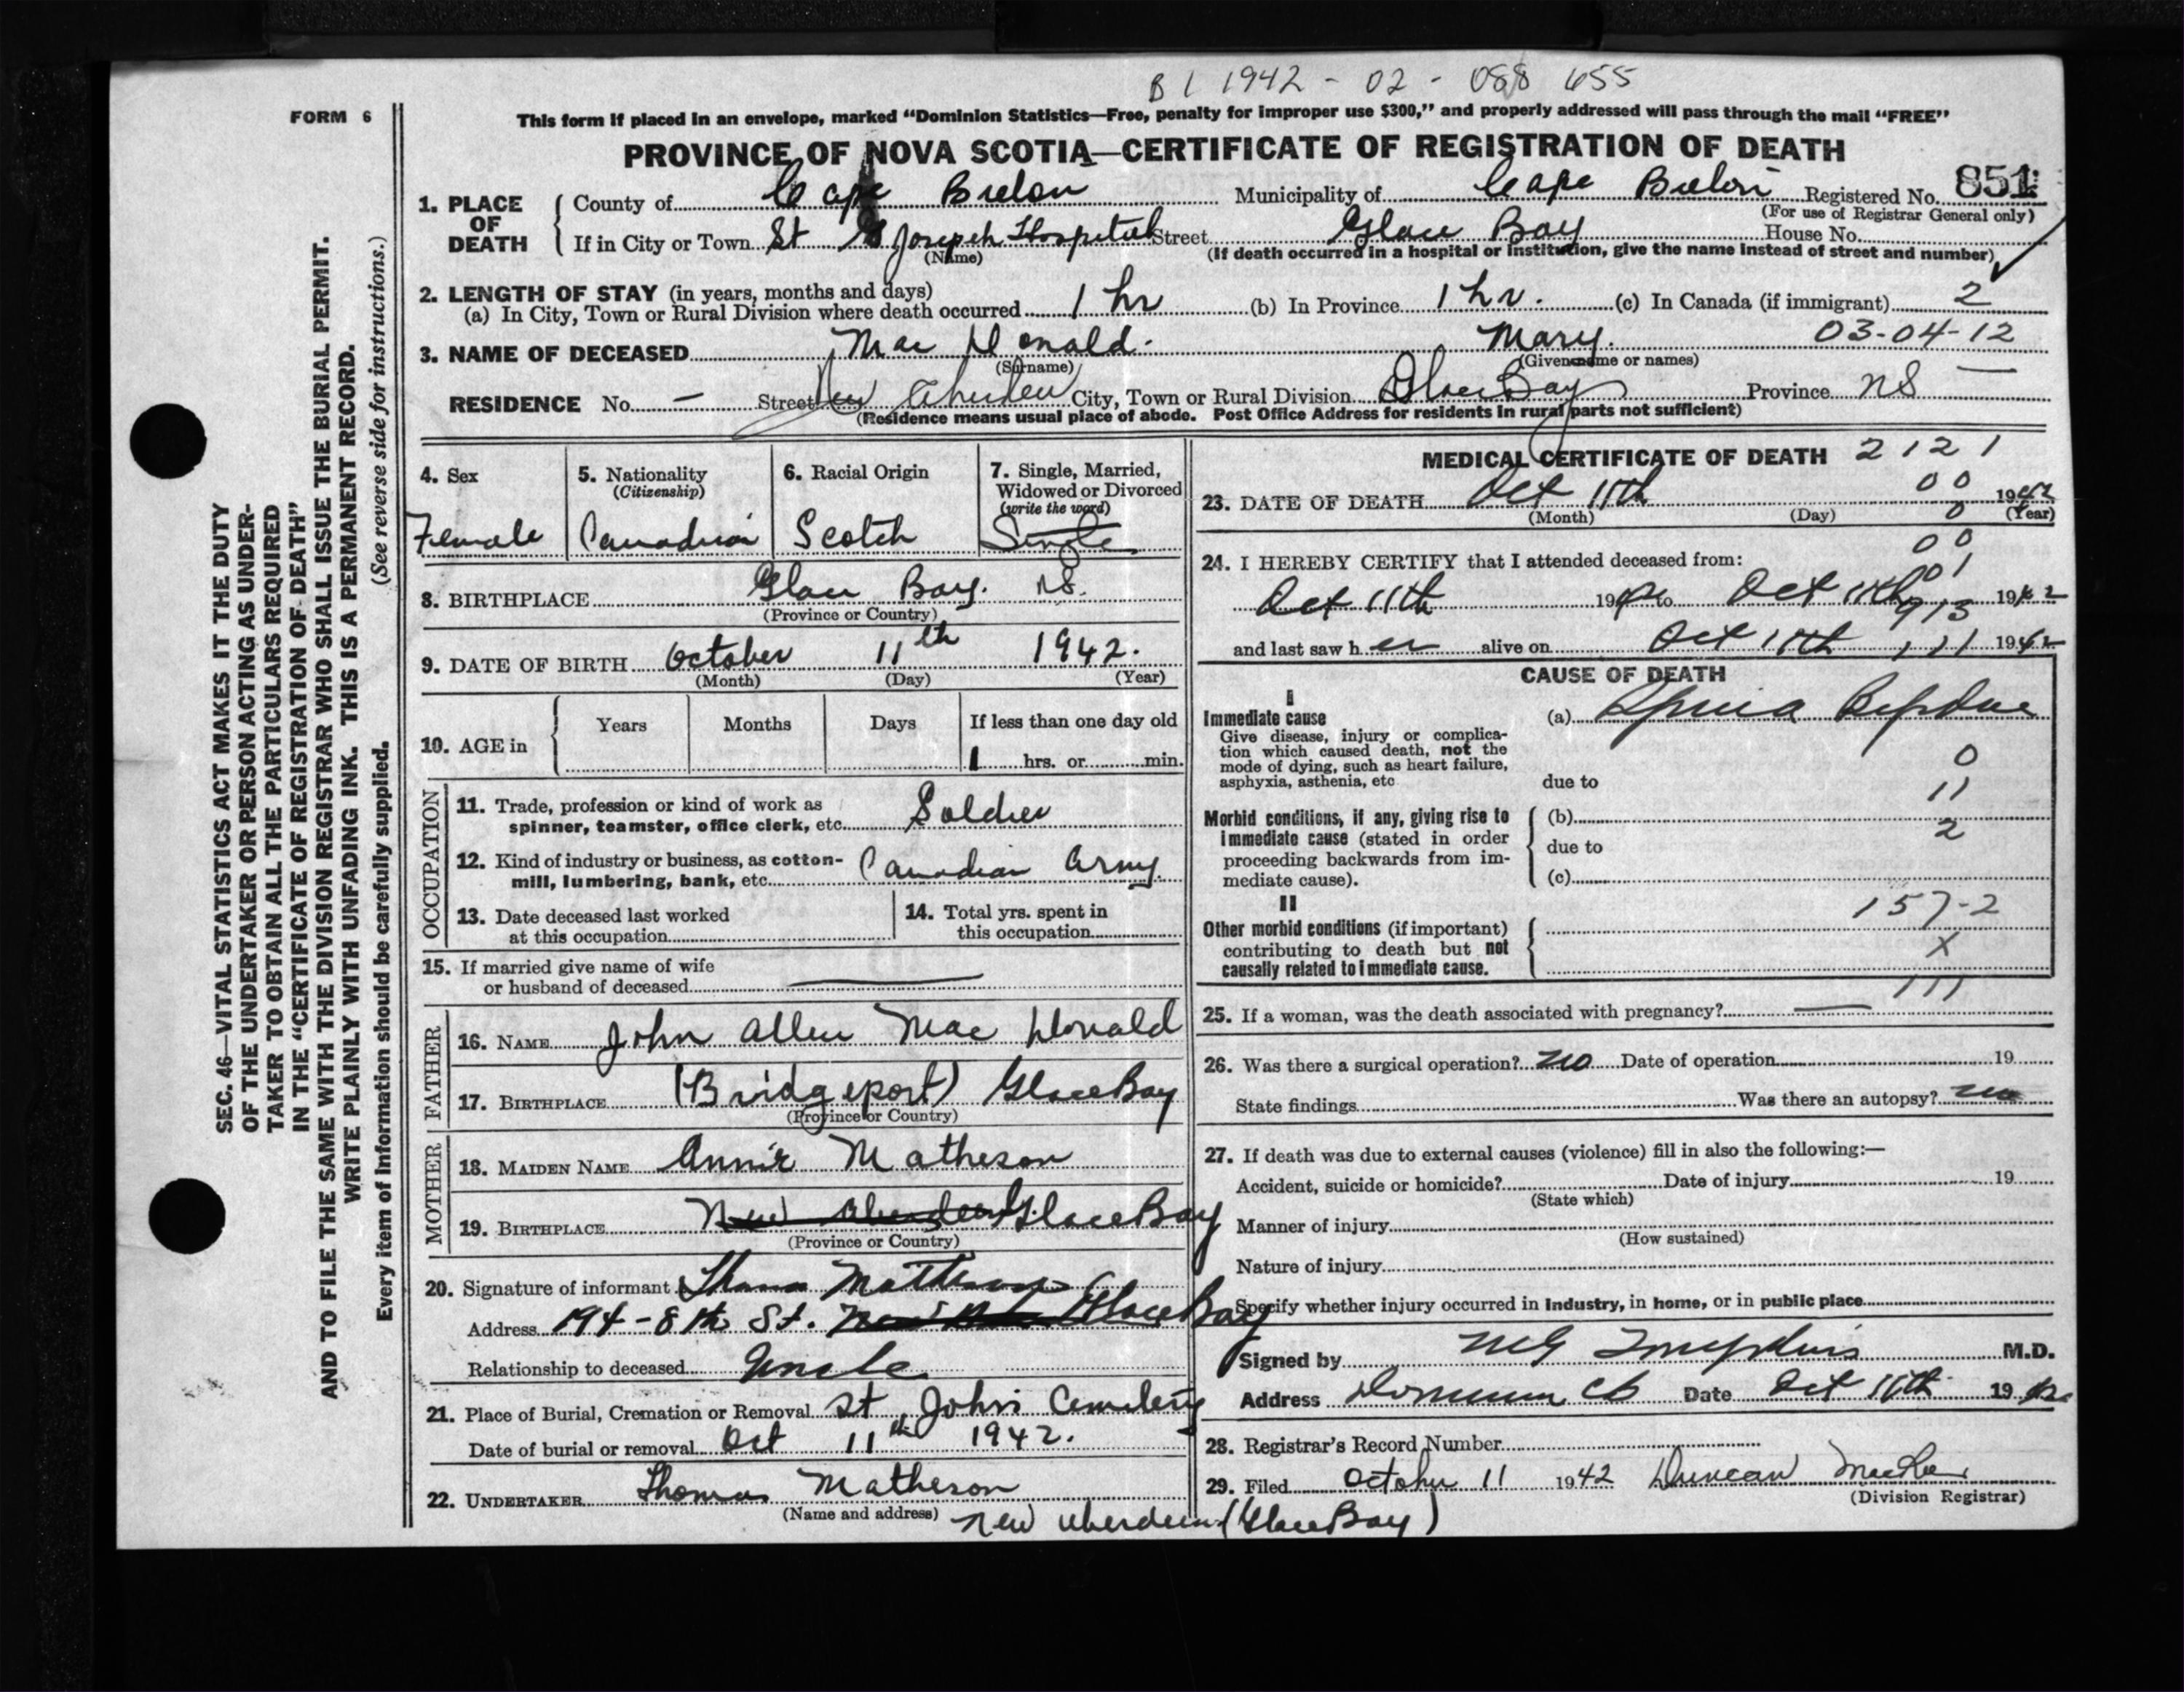 B 1 1942 - 02 - 088 655
FORM 6
This form if placed in an envelope, marked "Dominion Statistics—Free, penalty for improper use $300," and properly addressed will pass through the mail "FREE"
PROVINCE OF NOVA SCOTIA—CERTIFICATE OF REGISTRATION OF DEATH
1. PLACE OF DEATH
County of Cape Breton Municipality of Cape Breton Registered No. 851
(For use of Registrar General only)
If in City or Town St Joseph Hospital Street Glace Bay House No.
(Name) (If death occurred in a hospital or institution, give the name instead of street and number)
2. LENGTH OF STAY (in years, months and days)
(a) In City, Town or Rural Division where death occurred 1 hr (b) In Province 1 hr. (c) In Canada (if immigrant) 2
03-04-12
3. NAME OF DECEASED Mac Donald. Mary.
(Surname) (Given name or names)
RESIDENCE No. — Street New Aberdeen City, Town or Rural Division Glace Bay Province NS
(Residence means usual place of abode. Post Office Address for residents in rural parts not sufficient)
4. Sex
Female
5. Nationality
(Citizenship)
Canadian
6. Racial Origin
Scotch
7. Single, Married,
Widowed or Divorced
(write the word)
Single
8. BIRTHPLACE Glace Bay. NS.
(Province or Country)
9. DATE OF BIRTH October 11th 1942.
(Month) (Day) (Year)
10. AGE in
Years Months Days If less than one day old
1 hrs. or min.
OCCUPATION
11. Trade, profession or kind of work as
spinner, teamster, office clerk, etc. Soldier
12. Kind of industry or business, as cotton-
mill, lumbering, bank, etc. Canadian Army.
13. Date deceased last worked
at this occupation
14. Total yrs. spent in
this occupation
15. If married give name of wife
or husband of deceased
FATHER
16. NAME John Allen Mac Donald
17. BIRTHPLACE (Bridgeport) Glace Bay
(Province or Country)
MOTHER
18. MAIDEN NAME Annie Matheson
19. BIRTHPLACE New Aberdeen Glace Bay
(Province or Country)
20. Signature of informant Thomas Matheson
Address 194 - 8th St. Glace Bay
Relationship to deceased Uncle
21. Place of Burial, Cremation or Removal St Johns Cemetery
Date of burial or removal Oct 11th 1942.
22. UNDERTAKER Thomas Matheson
(Name and address) New Aberdeen (Glace Bay)
MEDICAL CERTIFICATE OF DEATH 2 1 2 1
0 0
23. DATE OF DEATH Oct 11th 1942
(Month) (Day) (Year)
0
0 0
24. I HEREBY CERTIFY that I attended deceased from:
01
Oct 11th 1942 to Oct 11th 1942
913
and last saw her alive on Oct 11th 1942
111
CAUSE OF DEATH
I
Immediate cause
Give disease, injury or complica-
tion which caused death, not the
mode of dying, such as heart failure,
asphyxia, asthenia, etc
(a) Spina Bifida
0
due to
11
Morbid conditions, if any, giving rise to
immediate cause (stated in order
proceeding backwards from im-
mediate cause).
(b)
2
due to
(c)
II
Other morbid conditions (if important)
contributing to death but not
causally related to immediate cause.
157-2
X
111
25. If a woman, was the death associated with pregnancy? —
26. Was there a surgical operation? no Date of operation 19
State findings Was there an autopsy? no
27. If death was due to external causes (violence) fill in also the following:—
Accident, suicide or homicide? Date of injury 19
(State which)
Manner of injury
(How sustained)
Nature of injury
Specify whether injury occurred in industry, in home, or in public place
Signed by MG Tompkins M.D.
Address Dominion CB Date Oct 11th 1942
28. Registrar's Record Number
29. Filed October 11 1942 Duncan MacRae
(Division Registrar)
SEC. 46—VITAL STATISTICS ACT MAKES IT THE DUTY
OF THE UNDERTAKER OR PERSON ACTING AS UNDER-
TAKER TO OBTAIN ALL THE PARTICULARS REQUIRED
IN THE "CERTIFICATE OF REGISTRATION OF DEATH"
AND TO FILE THE SAME WITH THE DIVISION REGISTRAR WHO SHALL ISSUE THE BURIAL PERMIT.
WRITE PLAINLY WITH UNFADING INK. THIS IS A PERMANENT RECORD.
Every item of information should be carefully supplied. (See reverse side for instructions.)